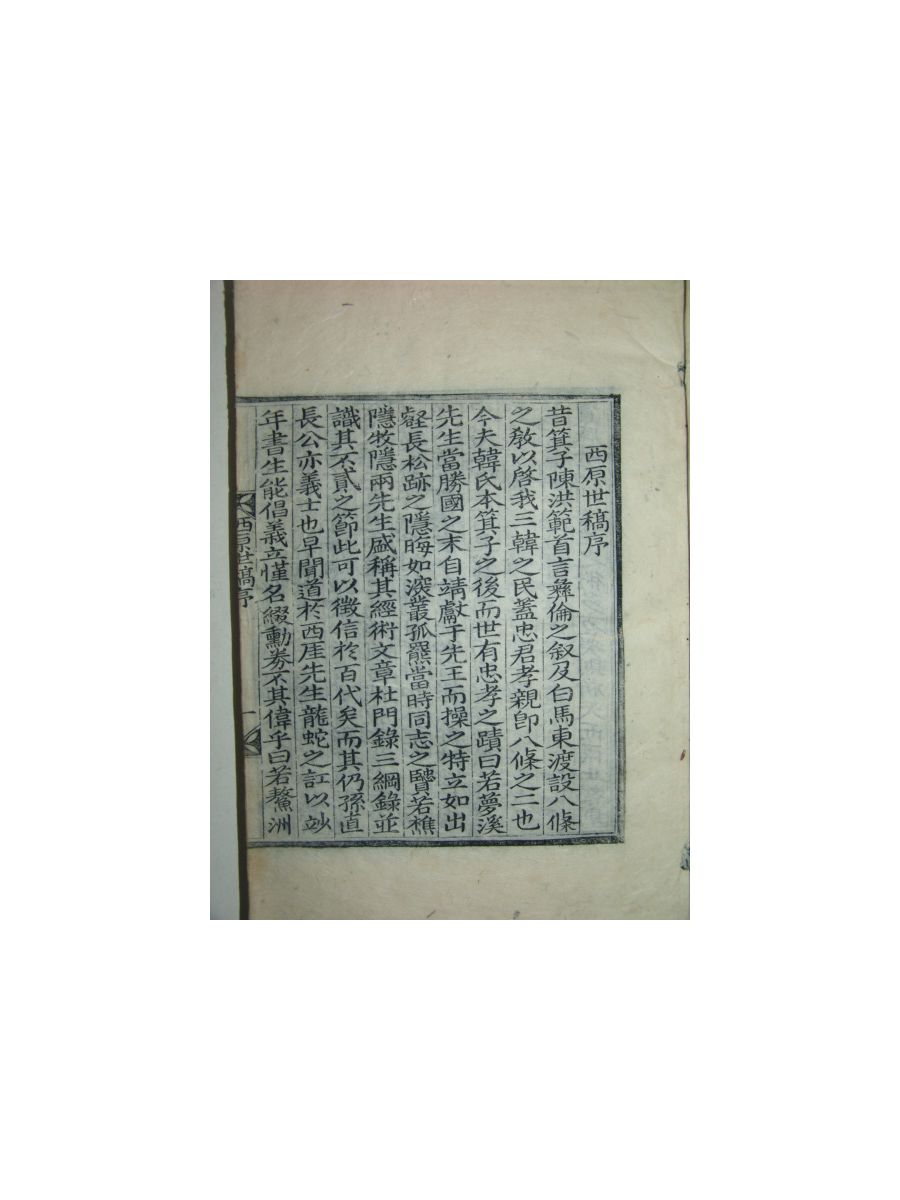 西原世稿序
昔箕子陳洪範首言彛倫之叙及白馬東渡設八條
之敎以啓我三韓之民蓋忠君孝親卽八條之二也
今夫韓氏本箕子之後而世有忠孝之蹟曰若夢溪
先生當勝國之末自靖獻于先王而操之特立如出
壑長松跡之隱晦如深叢孤羆當時同志之賢若樵
隱牧隱兩先生盛稱其經術文章杜門錄三綱錄並
識其不貳之節此可以徵信於百代矣而其仍孫直
長公亦義士也早聞道於西厓先生龍蛇之訌以玅
年書生能倡義立慬名綴勳券不其偉乎曰若鰲洲
西原世稿序
一